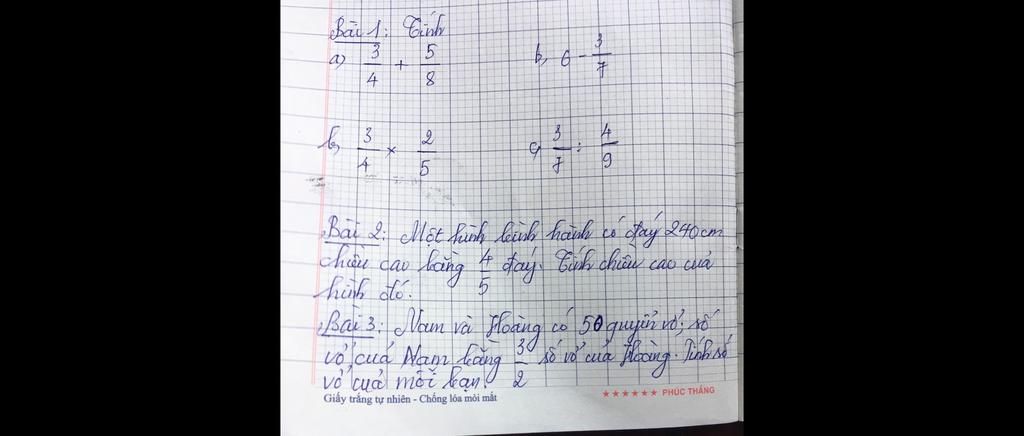 Bài 1: Tính
a) 3/4 + 5/8 b, 6 - 3/7
b, 3/4 × 2/5 c, 3/7 : 4/9
Bài 2: Một hình bình hành có đáy 240cm
chiều cao bằng 4/5 đáy. Tính chiều cao của
hình đó.
Bài 3: Nam và Hoàng có 50 quyển vở, số
vở của Nam bằng 3/2 số vở của Hoàng. Tính số
vở của mỗi bạn.
Giấy trắng tự nhiên - Chống lóa mỏi mắt ★★★★★★ PHÚC THẮNG